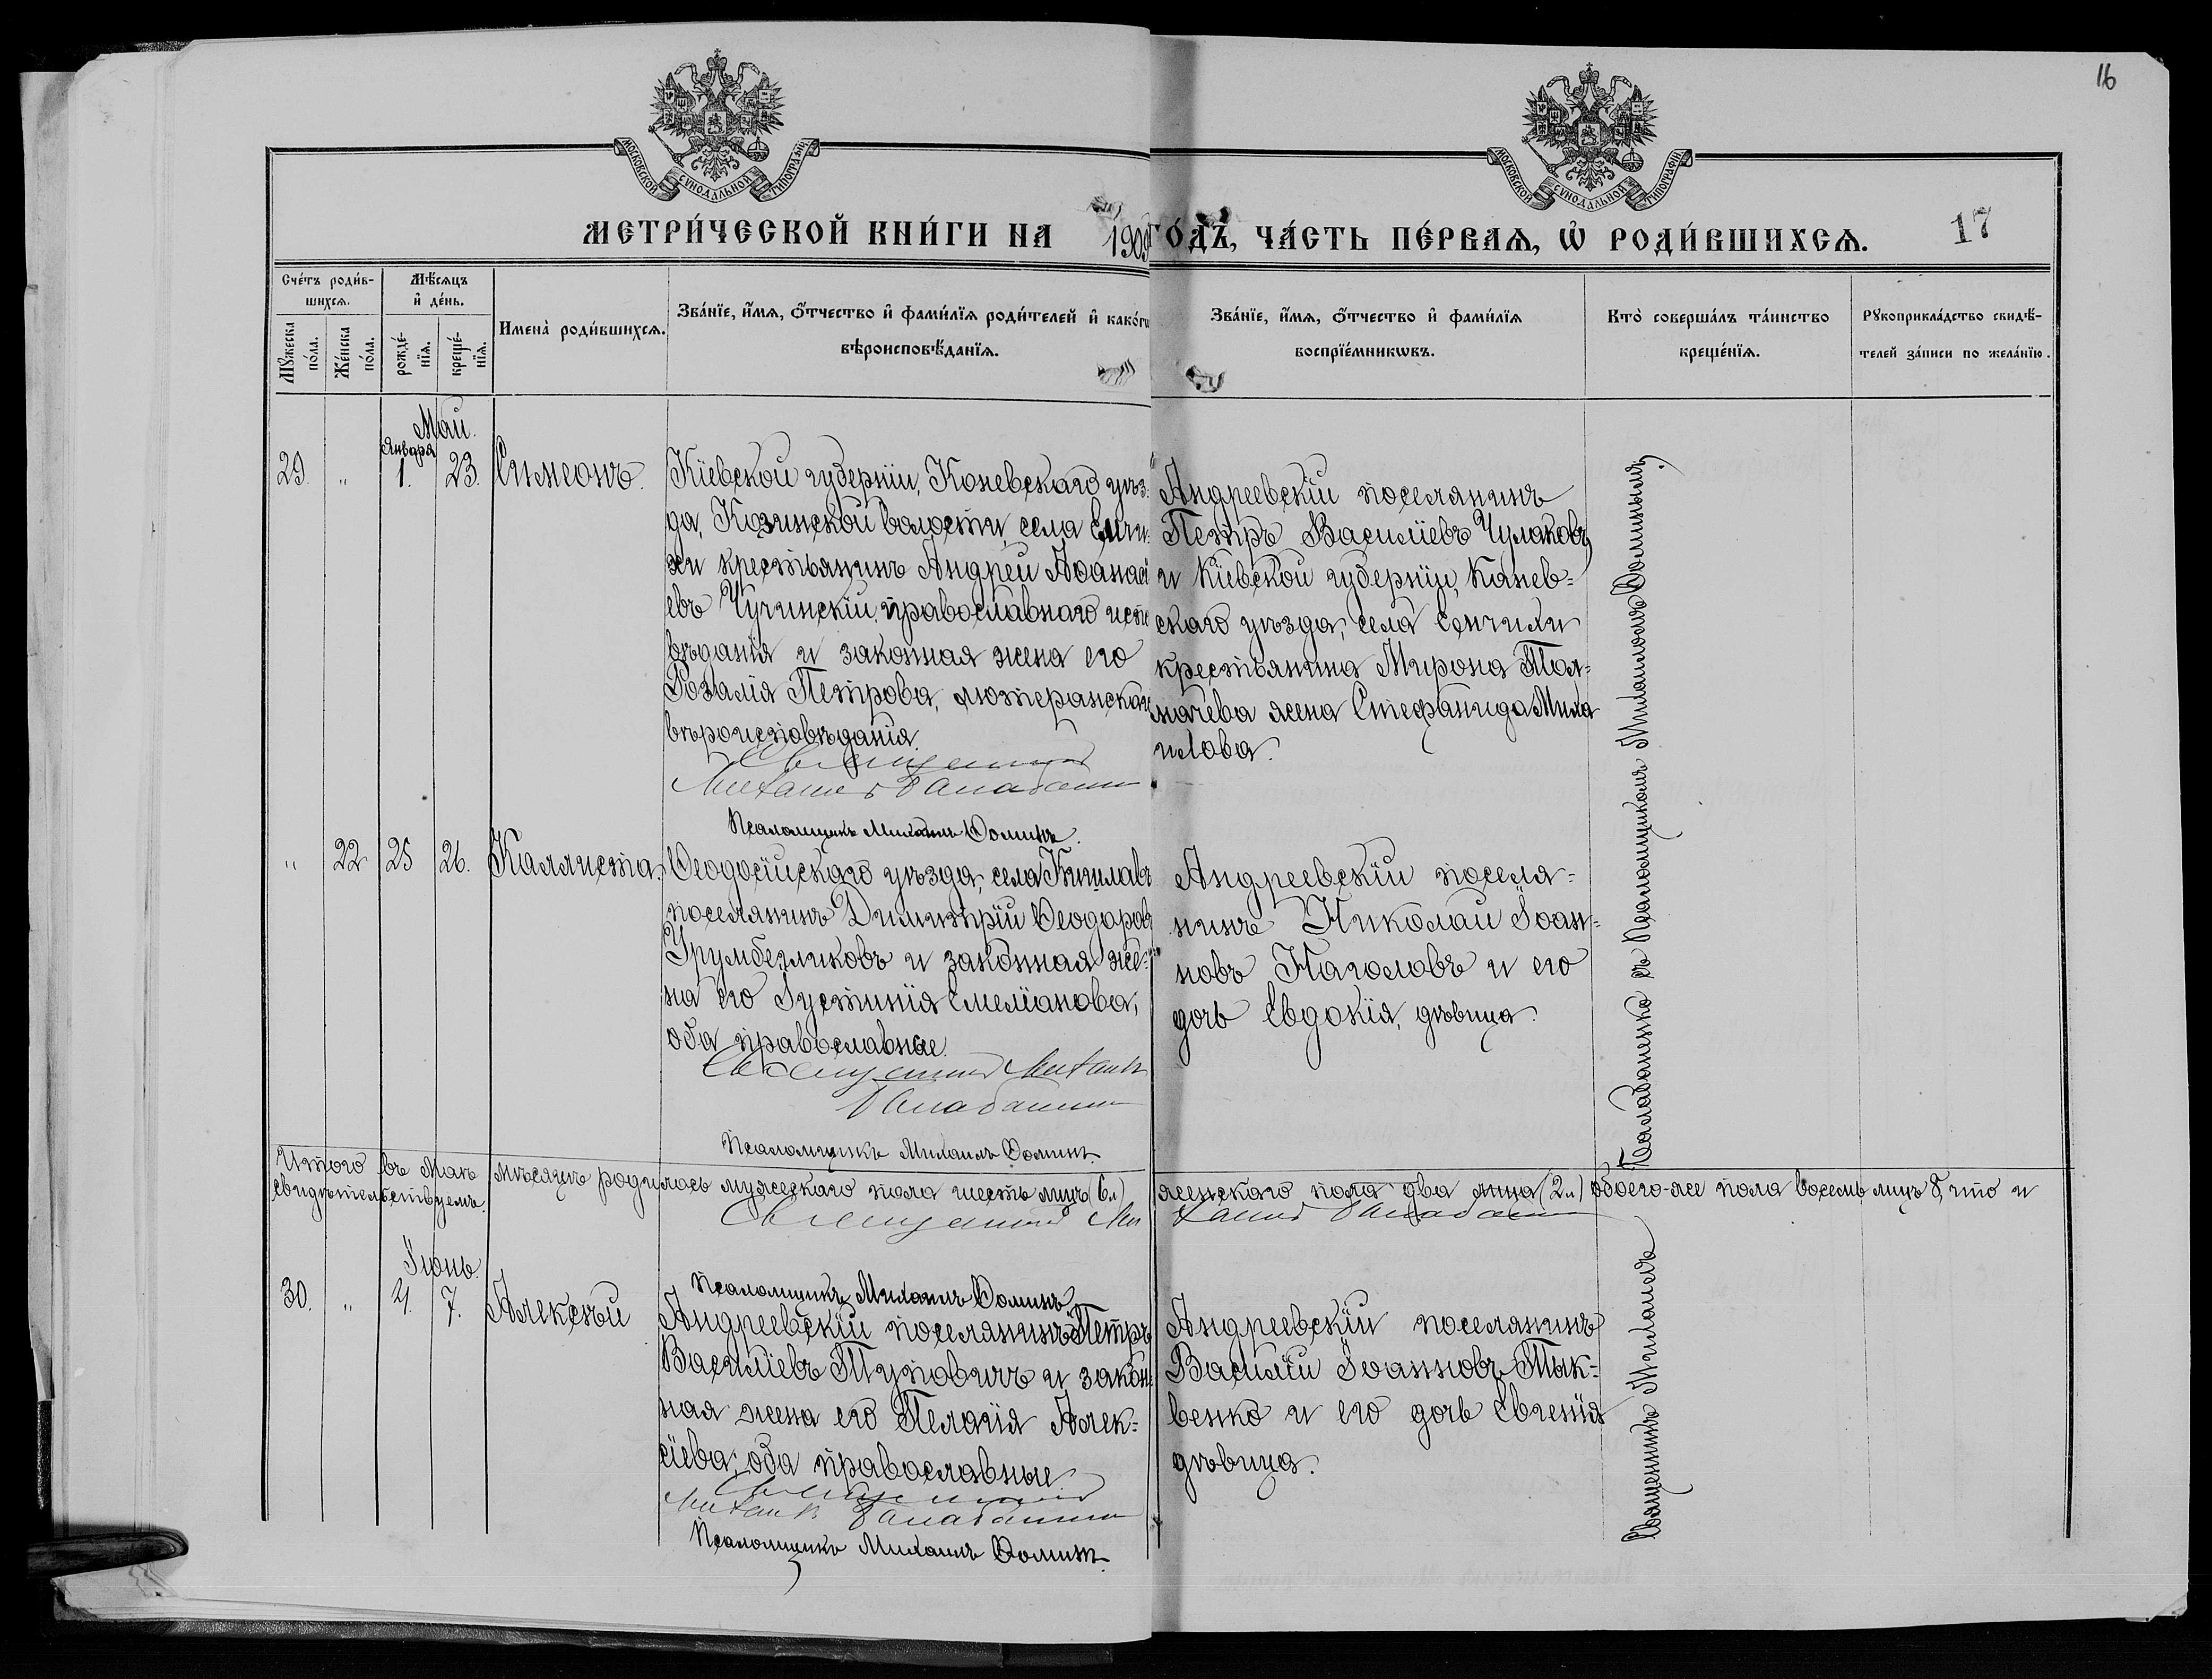 16
МОСКОВСКОЙ СѴНОДАЛЬНОЙ ТИПОГРАФІИ
МОСКОВСКОЙ СѴНОДАЛЬНОЙ ТИПОГРАФІИ
МЕТРИ́ЧЕСКОЙ КНИ́ГИ НА 190
ГО́ДЪ, ЧА́СТЬ ПЕ́РВАѦ, Ѡ҆ РОДИ́ВШИХСѦ.
17
Сче́тъ роди́в-
шихсѧ.
Мѣ́сѧцъ
и҆ де́нь.
Мꙋ́жеска
по́ла.
Же́нска
по́ла.
рожде́-
нїѧ.
креще́-
нїѧ.
Имена̀ роди́вшихсѧ.
Зва́нїе, и҆́мѧ, ѻ҆́тчество и҆ фами́лїѧ роди́телей и҆ како́гѡ
вѣроисповѣ́данїѧ.
Зва́нїе, и҆́мѧ, ѻ҆́тчество и҆ фами́лїѧ
воспрїе́мникѡвъ.
Кто̀ соверша́лъ та́инство
креще́нїѧ.
Рꙋкоприкла́дство свидѣ́-
телей за́писи по жела́нїю.
Май.
Января
29. " 1. 23. Симеонъ.
Кіевской губерніи, Коневскаго уѣз-
да, Козинской волости, села Емчи-
хи крестьянинъ Андрей Аѳанасі
евъ Чучинскій, православнаго испо
вѣданія и законная жена его
Розалія Петрова, лютеранскаго
вѣроисповѣданія.
Священникъ
Михаилъ Балабаненко
Псаломщикъ Михаилъ Ѳоминъ.
Андреевскій поселянинъ
Петръ Василіевъ Чулаковъ
и Кіевской губерніи, Канев-
скаго уѣзда, села Емчихи
крестьянина Мирона Тол-
мачева жена Стефанида Миха
илова.
" 22 25 26. Каллиста.
Ѳеодосійскаго уѣзда, села Кишлавъ
поселянинъ Димитрій Ѳеодоровъ
Урумбегликовъ и законная же-
на его Іустинія Емеліанова,
оба православные.
Священникъ Михаилъ
Балабаненко
Псаломщикъ Михаилъ Ѳоминъ.
Андреевскій поселя-
нинъ Николай Іоан-
новъ Наголовъ и его
дочь Евдокія, дѣвица.
Балабаненко съ Псаломщикомъ Михаиломъ Ѳоминымъ.
Итого въ Маѣ мѣсяцѣ родилось мужескаго пола шесть лицъ (6 л) женскаго пола два лица (2 л) обоего-же пола восемь лицъ 8, что и
свидѣтельствуемъ.
Священникъ Михаилъ Балабаненко
Псаломщикъ Михаилъ Ѳоминъ.
Іюнь.
30. " 4. 7. Алексѣй
Андреевскій поселянинъ Петръ
Василіевъ Туповичъ и закон-
ная жена его Пелагія Алек-
сіева, оба православные
Священникъ
Михаилъ Балабаненко
Псаломщикъ Михаилъ Ѳоминъ.
Андреевскій поселянинъ
Василій Іоанновъ Мак-
венко и его дочь Евгенія
дѣвица.
Священникъ Михаилъ